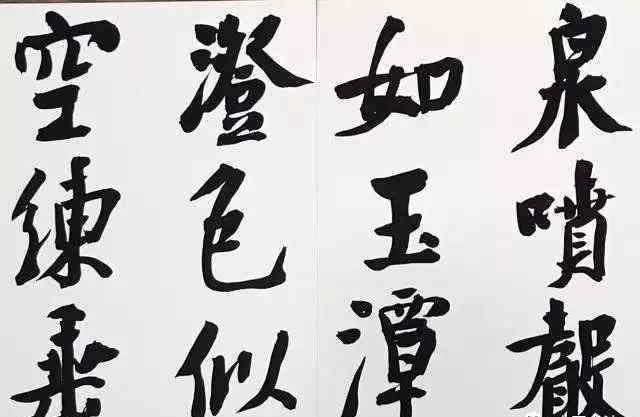 泉噴聲
如玉潭
澄色似
空練垂